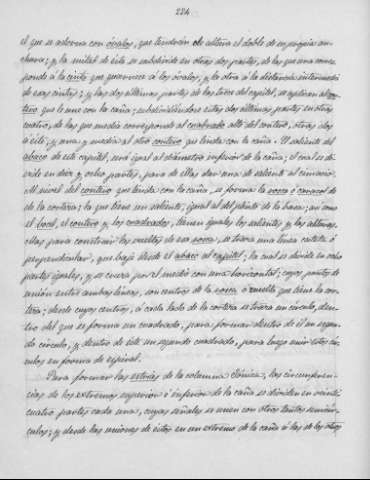 224
el que se adorna con óvalos, que tendrán de altura el doble de su propia an-
chura; y la mitad de ésta se subdivide en otras dos partes, de las que una corres-
ponde á la cinta que guarnece á los óvalos, y la otra á la distancia intermedia
de esas cintas; y las dos últimas partes de las trece del capitel, se aplican al con-
tero que le une con la caña; subdividiéndose estas dos últimas partes en otras
cuatro, de las que media corresponde al cuadrado alto del contero, otras dos
á éste, y una y media al otro contero que linda con la caña. El saliente del
abaco de este capitel, será igual al diámetro inferior de la caña; el cual se di-
vide en diez y ocho partes, para de ellas dar una de saliente al cimacio.
Al nivel del contero que linda con la caña, se forma la rosca ó caracol de
de la corteza; la que tiene un saliente, igual al del plinto de la basa; así como
el bocel, el contero y los cuadrados, tienen iguales los salientes y las alturas.
Mas para construir las vueltas de esa rosca, se tirará una línea cateta ó
perpendicular, que baje desde el abaco al capitel; la cual se divide en ocho
partes iguales, y se cruza por el medio con una horizontal; cuyos puntos de
unión entre ambas líneas, son centros de la rosca ó vuelta que tiene la cor-
teza; desde cuyos centros, á cada lado de la corteza se tirará un círculo, den-
tro del que se forma un cuadrado, para formar dentro de él un segun-
do círculo, y dentro de éste un segundo cuadrado, para luego unir estos cír-
culos en forma de espiral.
Para formar las estrías de la columna Jónica; las circunferen-
cias de los extremos superior é inferior de la caña se dividen en veinti-
cuatro partes cada una, cuyas señales se unen con otros tantos semicír-
culos; y desde las uniones de éstos en un extremo de la caña á las de los otros